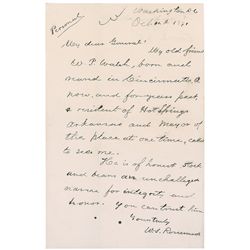 Personal
Washington DC
My dear General:
My old friend
W. P. Walsh, born and
reared in Cincinnati, O
now, and for years past,
a resident of Hot Springs
Arkansas and Mayor of
the place at one time, called
to see me.
He is of honest stock
and bears an unchallenged
name for integrity and
honor. You can trust him
Yours truly
W.S. Rosecrans